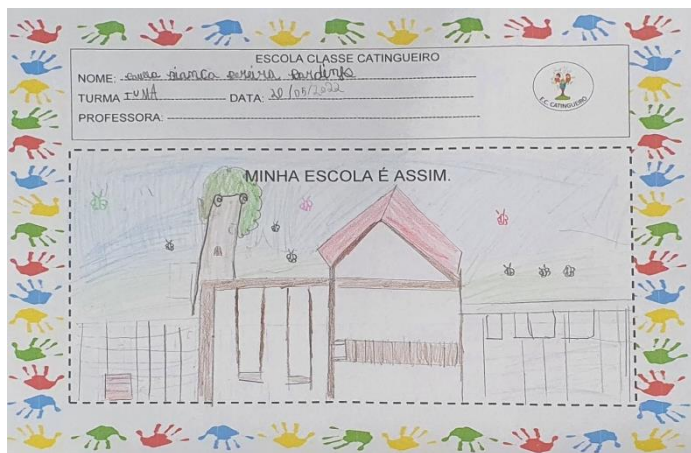 ESCOLA CLASSE CATINGUEIRO
NOME: Bianca
TURMA DATA: 20/05/2022
PROFESSORA:
E.C. CATINGUEIRO
MINHA ESCOLA É ASSIM.